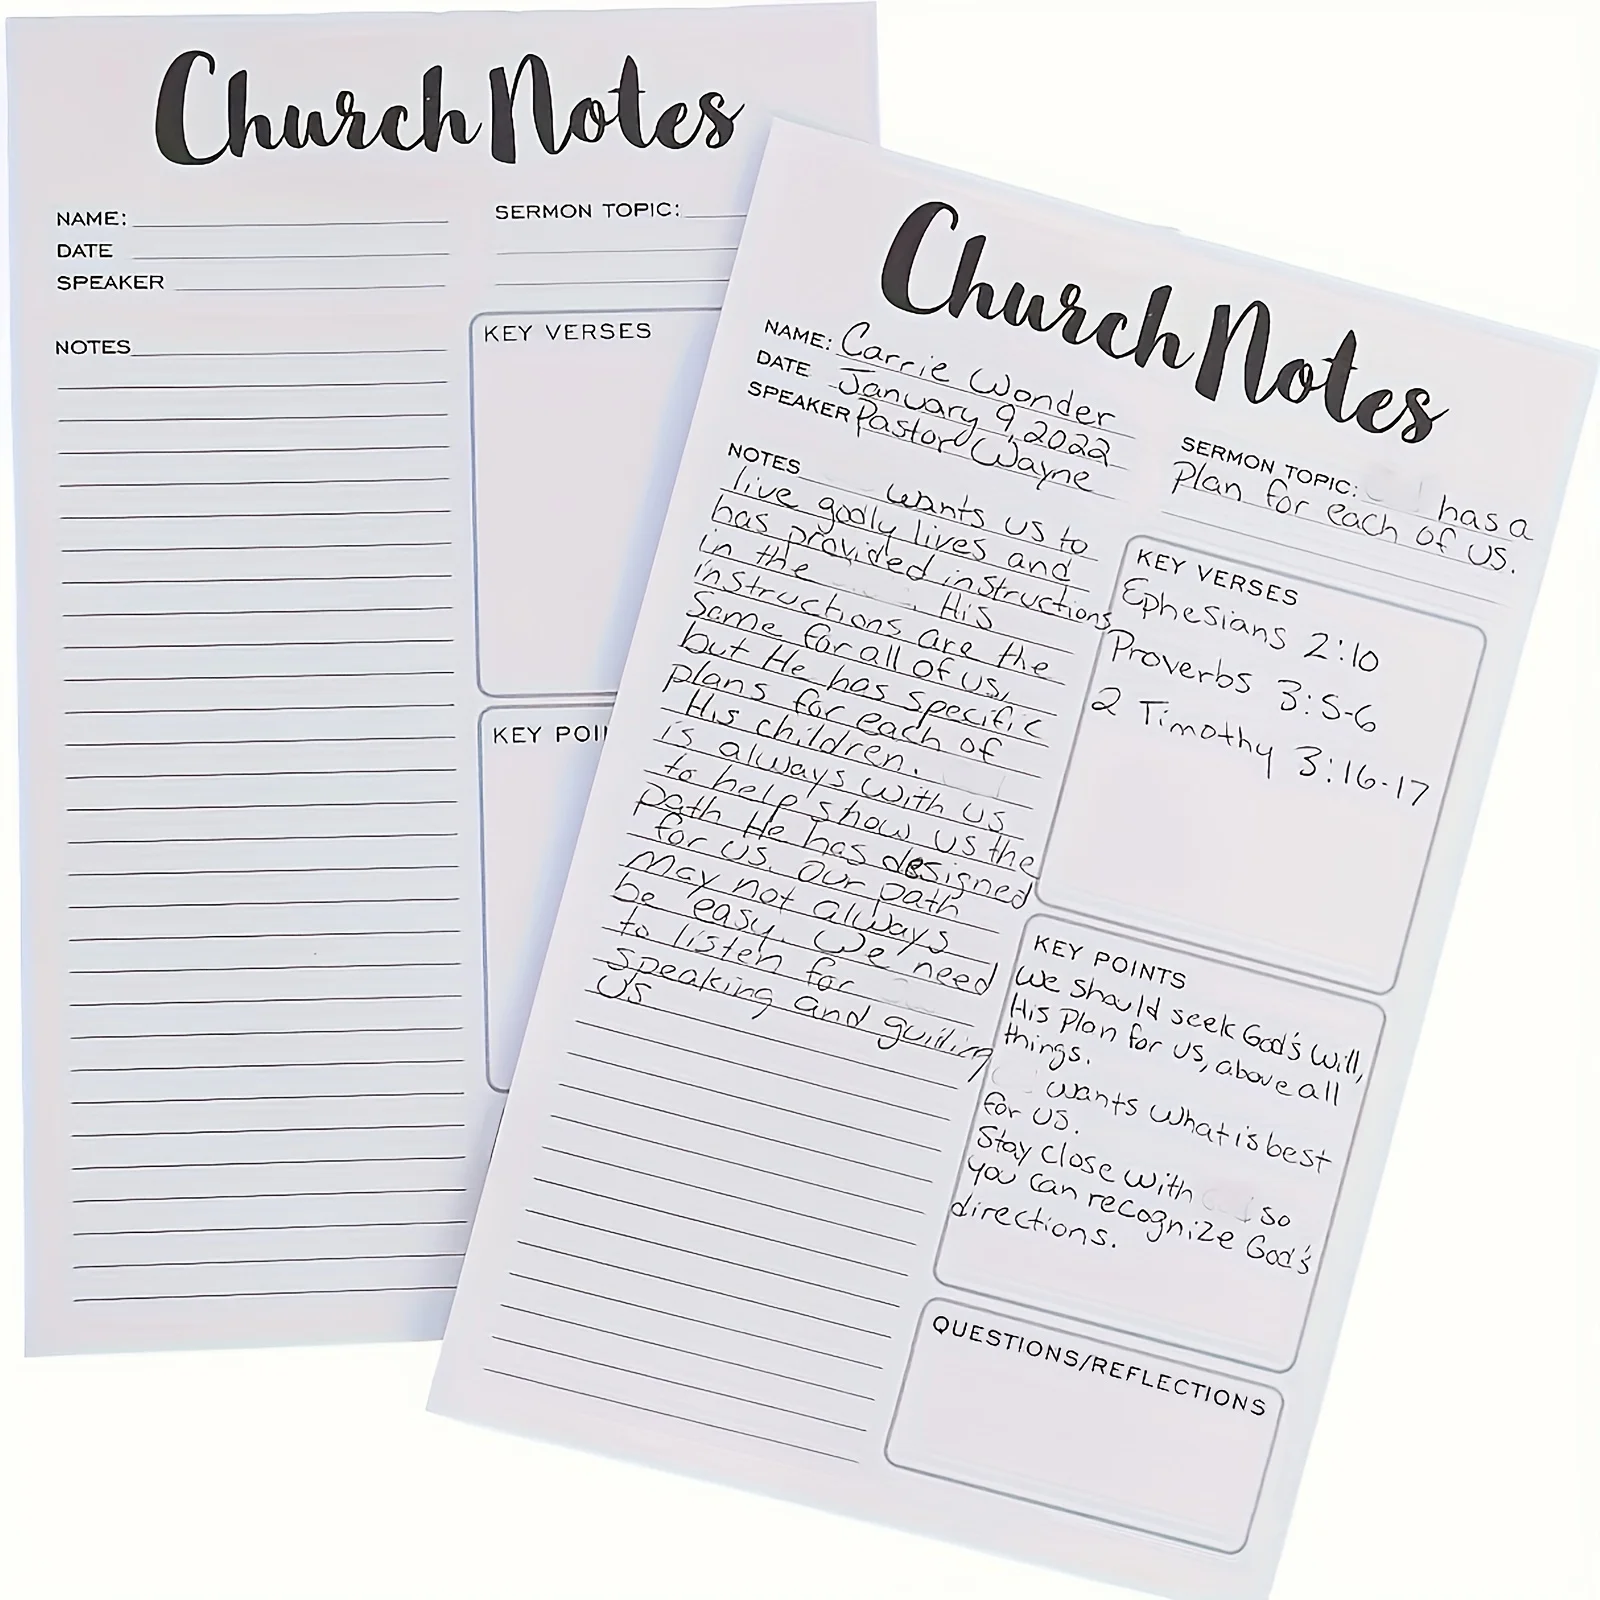 Church Notes
NAME:
DATE
SPEAKER
SERMON TOPIC:
NOTES
KEY VERSES
KEY POI
Church Notes
NAME: Carrie Wonder
DATE January 9, 2022
SPEAKER Pastor Wayne
SERMON TOPIC: has a
Plan for each of us.
NOTES wants us to
live godly lives and
has provided instructions
in the . His
instructions are the
same for all of us,
but He has specific
plans for each of
His children.
is always with us
to help show us the
path He has designed
for us. Our path
may not always
be easy. We need
to listen for
speaking and guiding
us
KEY VERSES
Ephesians 2:10
Proverbs 3:5-6
2 Timothy 3:16-17
KEY POINTS
We should seek God's will,
His Plan for us, above all
things.
wants what is best
for us.
Stay close with so
you can recognize God's
directions.
QUESTIONS/REFLECTIONS